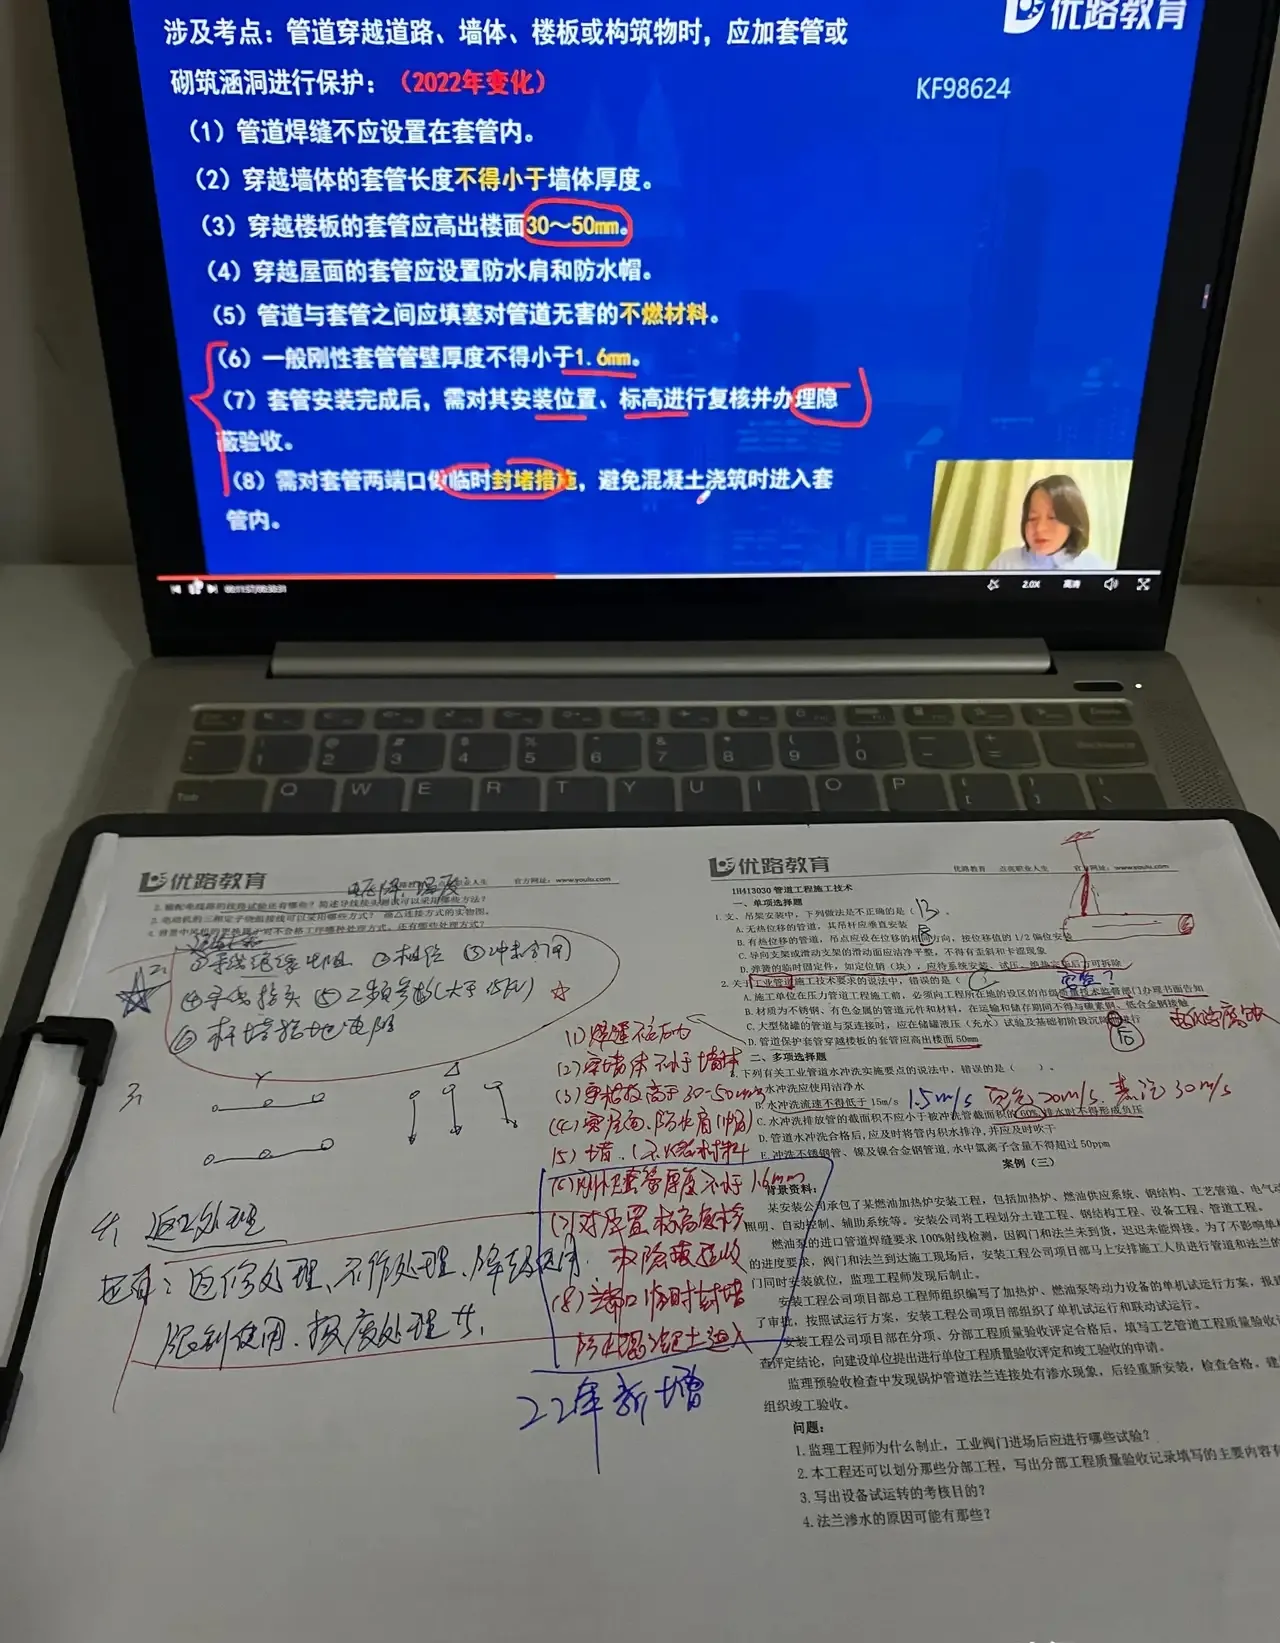 优路教育
涉及考点：管道穿越道路、墙体、楼板或构筑物时，应加套管或
砌筑涵洞进行保护：（2022年变化）
KF98624
（1）管道焊缝不应设置在套管内。
（2）穿越墙体的套管长度不得小于墙体厚度。
（3）穿越楼板的套管应高出楼面30～50mm。
（4）穿越屋面的套管应设置防水肩和防水帽。
（5）管道与套管之间应填塞对管道无害的不燃材料。
（6）一般刚性套管管壁厚度不得小于1.6mm。
（7）套管安装完成后，需对其安装位置、标高进行复核并办理隐
蔽验收。
（8）需对套管两端口做临时封堵措施，避免混凝土浇筑时进入套
管内。
2.0X
高清
Q W E R T Y U I O P
优路教育
官方网址：www.youlu.com
3. 电动机的三相定子绕组接线可以采用哪些方式？
②相位
⑤工频参数(大于
⑥杆塔接地电阻
3、
Y
△
4、返工处理
还有：返修处理、不作处理、降级使用、
限制使用、报废处理共。
(1)焊缝不在内
(2)穿墙体不小于墙体
(3)穿楼板高于30-50mm
(4)穿屋面、防水肩(帽)
(5)堵、(不燃材料
(6)刚性套管厚度不小于1.6mm
(7)对位置标高复核
(8)端口临时封堵
防止混凝土进入
22年新增
优路教育
优路教育 点亮职业人生 官方网址：www.youlu.com
1H413030 管道工程施工技术
一、单项选择题
1. 支、吊架安装中，下列做法是不正确的是（ B
A. 无热位移的管道，其吊杆应垂直安装
B. 有热位移的管道，吊点应设在位移的相同方向，按位移值的 1/2 偏位安装
C. 导向支架或滑动支架的滑动面应洁净平整，不得有歪斜和卡涩现象
D. 弹簧的临时固定件，如定位销（块），应待系统安装、试压、绝热完毕后方可拆除
2. 关于工业管道施工技术要求的说法中，错误的是（
A. 施工单位在压力管道工程施工前，必须向工程所在地的设区的市级质量技术监督部门办理书面告知
B. 材质为不锈钢、有色金属的管道元件和材料，在运输和储存期间不得与碳素钢、低合金钢接触
电化学腐蚀
C. 大型储罐的管道与泵连接时，应在储罐液压（充水）试验及基础初阶段沉降后进行
后
D. 管道保护套管穿越楼板的套管应高出楼面 50mm
二、多项选择题
1. 下列有关工业管道水冲洗实施要点的说法中，错误的是（ ）。
A. 水冲洗应使用洁净水
B. 水冲洗流速不得低于 15m/s 1.5m/s 空气20m/s. 蒸汽30m/s
C. 水冲洗排放管的截面积不应小于被冲洗管截面积的 60%，排水时不得形成负压
D. 管道水冲洗合格后，应及时将管内积水排净，并应及时吹干
E. 冲洗不锈钢管、镍及镍合金钢管道，水中氯离子含量不得超过 50ppm
案例（三）
背景资料：
某安装公司承包了某燃油加热炉安装工程，包括加热炉、燃油供应系统、钢结构、工艺管道、电气动
照明、自动控制、辅助系统等。安装公司将工程划分土建工程、钢结构工程、设备工程、管道工程。
燃油泵的进口管道焊缝要求 100%射线检测，因阀门和法兰未到货，迟迟未能焊接。为了不影响单机
的进度要求，阀门和法兰到达施工现场后，安装工程公司项目部马上安排施工人员进行管道和法兰的
门同时安装就位，监理工程师发现后制止。
安装工程公司项目部总工程师组织编写了加热炉、燃油泵等动力设备的单机试运行方案，报监
了审批，按照试运行方案，安装工程公司项目部组织了单机试运行和联动试运行。
安装工程公司项目部在分项、分部工程质量验收评定合格后，填写工艺管道工程质量验收记
查评定结论，向建设单位提出进行单位工程质量验收评定和竣工验收的申请。
监理预验收检查中发现锅炉管道法兰连接处有渗水现象，后经重新安装，检查合格。建
组织竣工验收。
问题：
1. 监理工程师为什么制止，工业阀门进场后应进行哪些试验？
2. 本工程还可以划分那些分部工程，写出分部工程质量验收记录填写的主要内容有
3. 写出设备试运转的考核目的？
4. 法兰渗水的原因可能有那些？